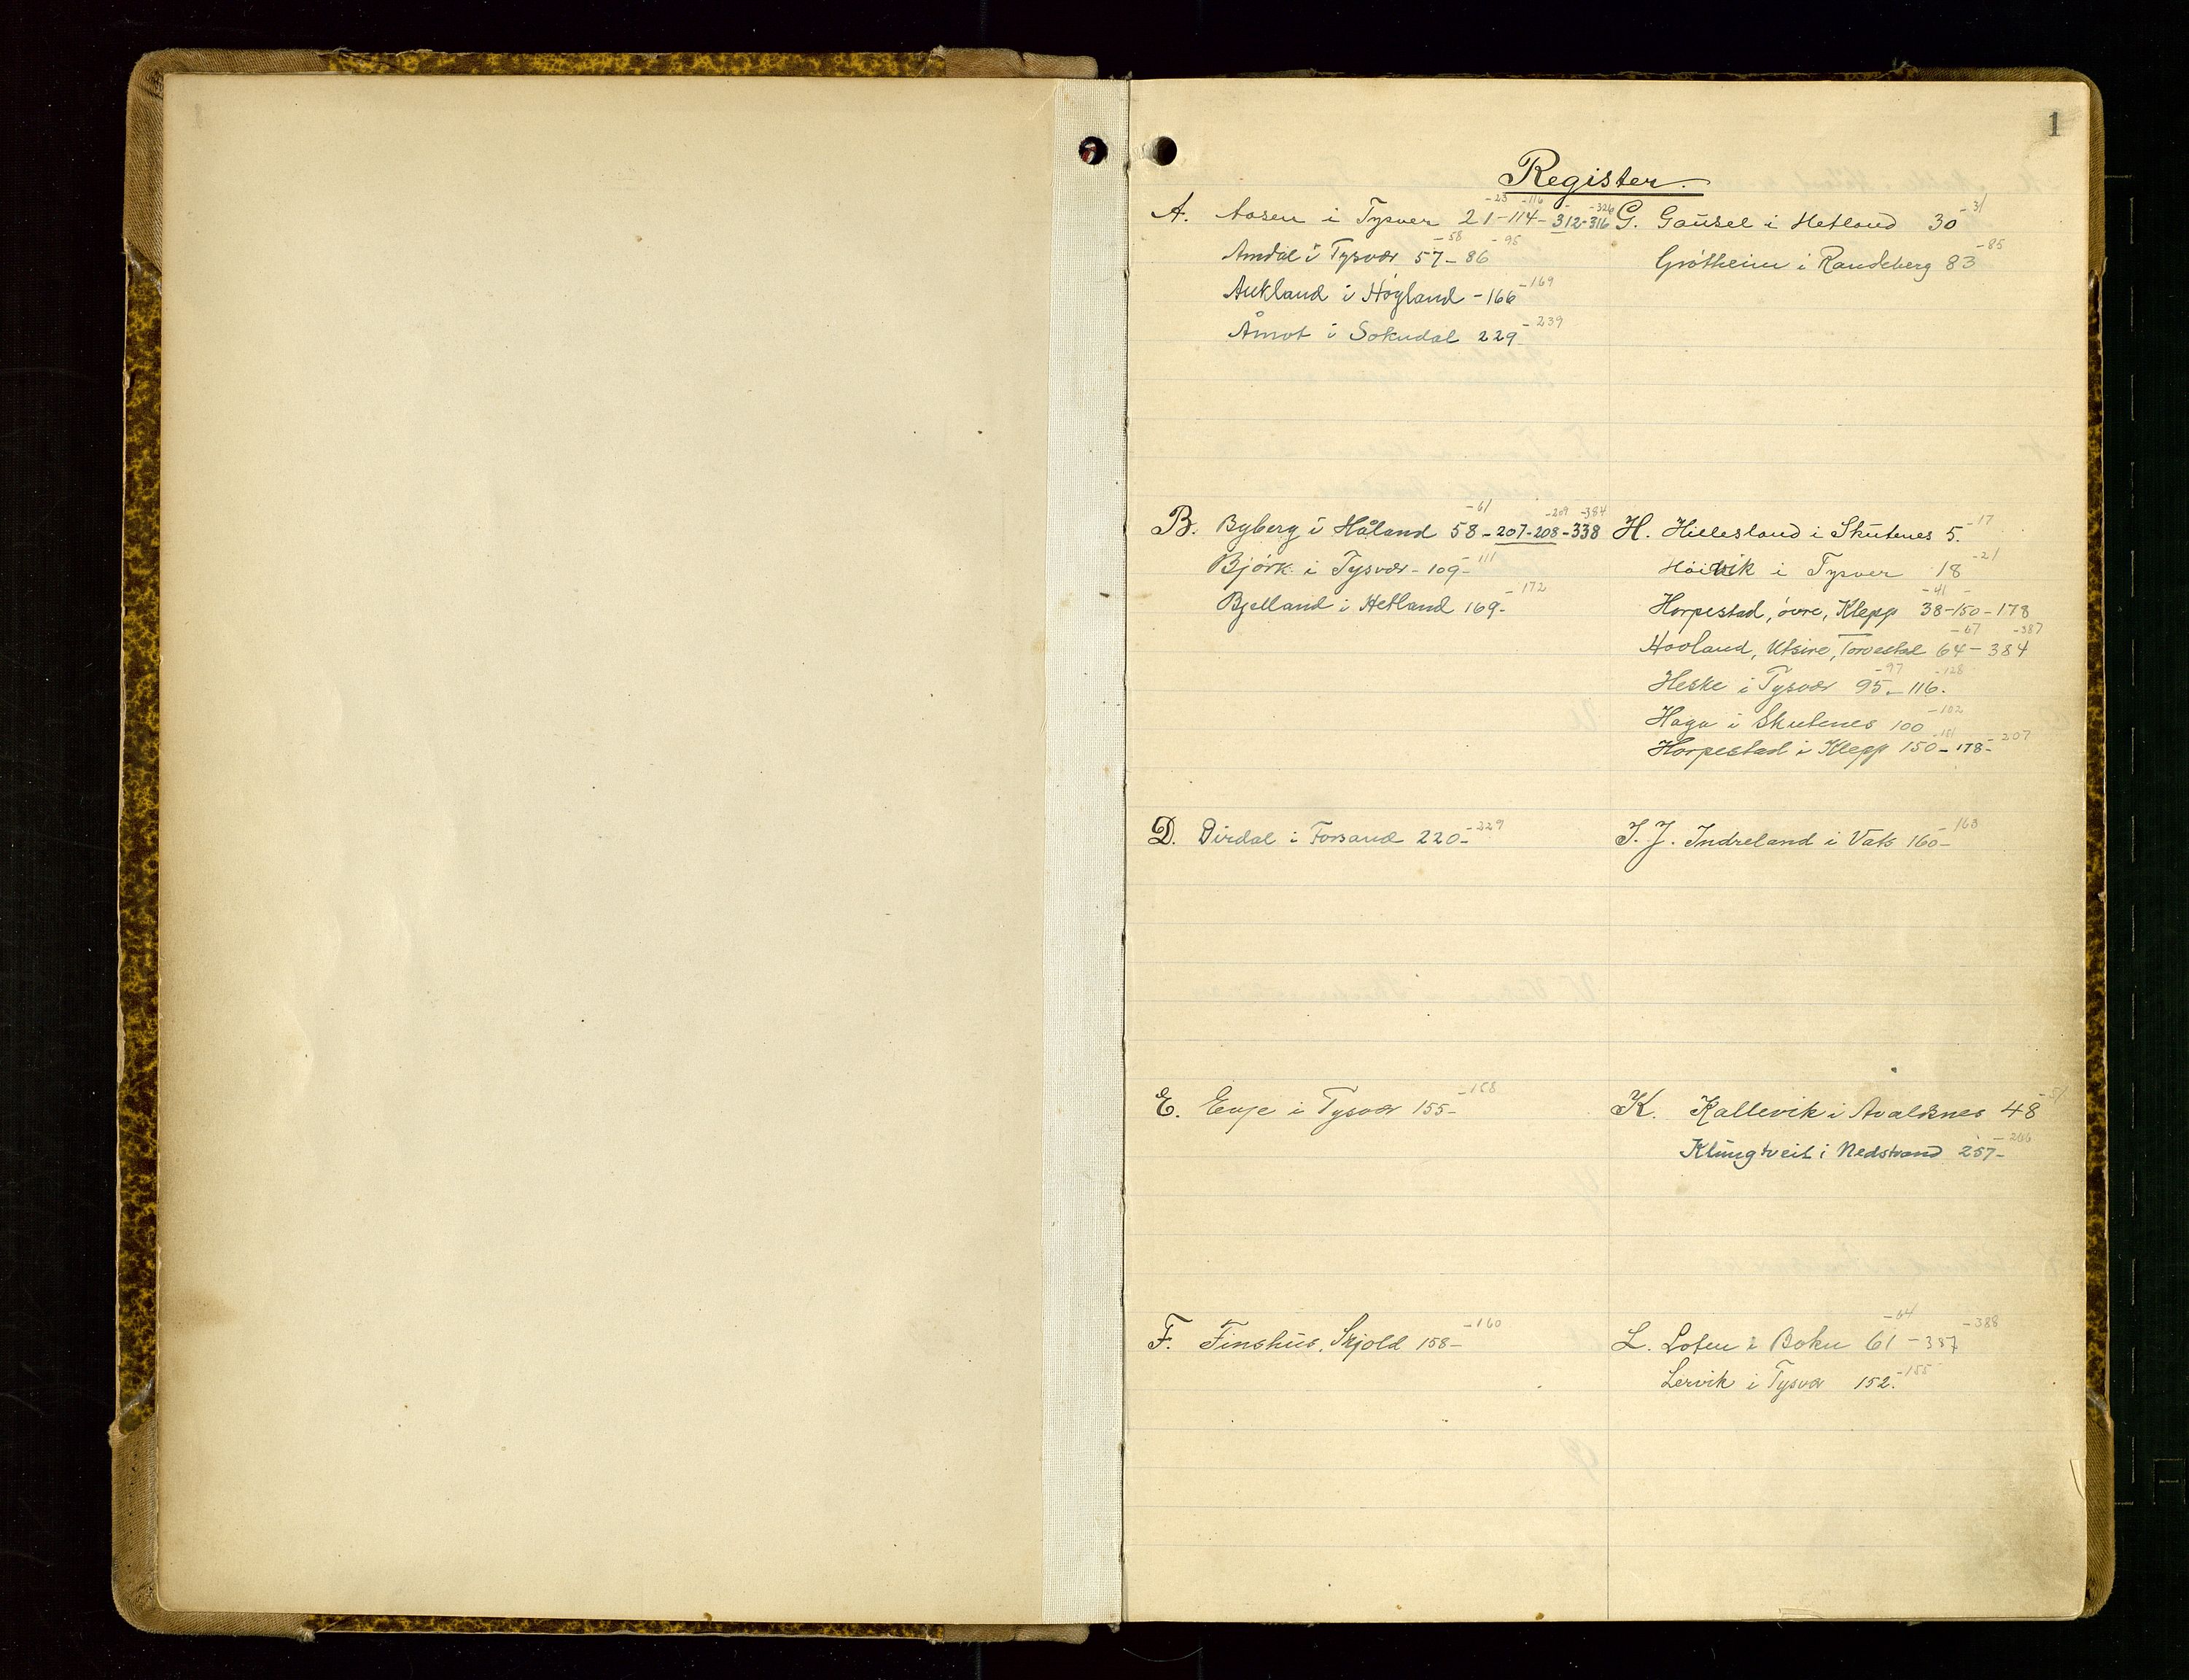 1
Register.
A. Aasen i Tysver 21-23-114-116-312-316-326
Amdal i Tysvær 57-58-86-95
Aukland i Høgland -166-169
Åmot i Sokndal 229-239
B. Byberg i Håland 58-61-207-208-209-338-384
Bjørk i Tysvær -109-111
Bjelland i Hetland 169-172
D. Dirdal i Forsand 220-229
E. Evje i Tysvær 155-158
F. Finshus, Skjold 158-160
G. Gausel i Hetland 30-31
Grøtheim i Randeberg 83-85
H. Hillesland i Skutenes 5.-17
Høievik i Tysver 18-21
Horpestad, øvre, Klepp 38-41-150-178
Hovland, Utsire, Torvestad 64-67-384-387
Heske i Tysvær 95-97-116.-128
Haga i Skutenes 100-102
Horpestad i Klepp 150-151-178-207
I. J. Indreland i Vats 160-163
K. Kallevik i Avaldsnes 48-51
Klungtveit i Nedstrand 257-266
L. Loten i Bokn 61-64-387-388
Lervik i Tysvær 152.-155